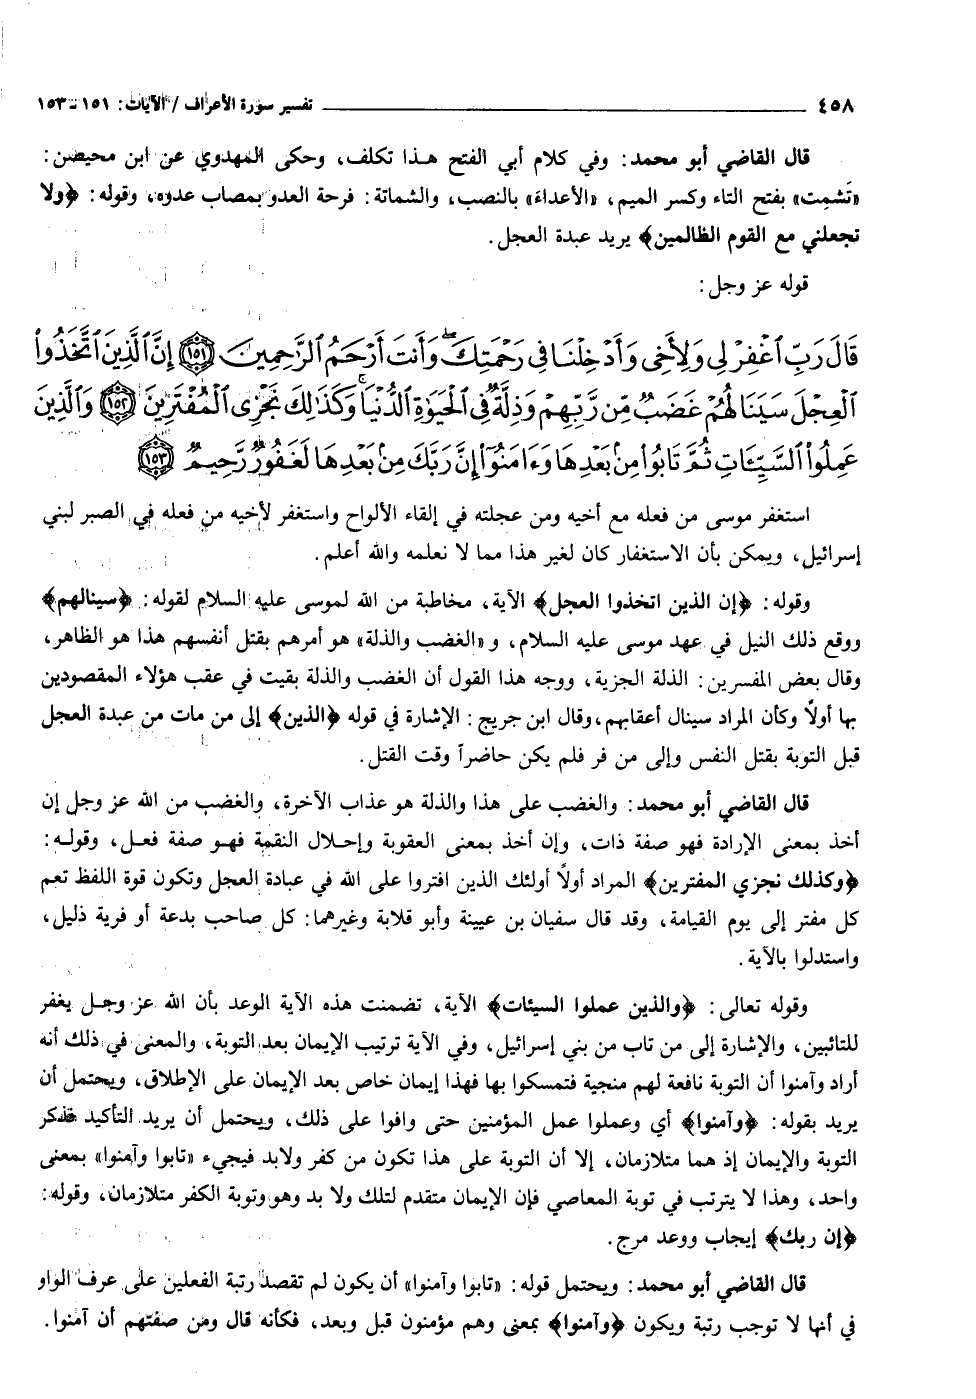 ٤٥٨ ــــــــ تفسير سورة الأعراف / الآيات: ١٥١ - ١٥٣
قال القاضي أبو محمد: وفي كلام أبي الفتح هذا تكلف، وحكى المهدوي عن ابن محيصن:
«تَشمِت» بفتح التاء وكسر الميم، «الأعداءَ» بالنصب، والشماتة: فرحة العدو بمصاب عدوه، وقوله: ﴿ولا
تجعلني مع القوم الظالمين﴾ يريد عبدة العجل.
قوله عز وجل:
قَالَ رَبِّ ٱغْفِرْ لِى وَلِأَخِى وَأَدْخِلْنَا فِى رَحْمَتِكَ ۖ وَأَنتَ أَرْحَمُ ٱلرَّٰحِمِينَ ﴿١٥١﴾ إِنَّ ٱلَّذِينَ ٱتَّخَذُوا۟
ٱلْعِجْلَ سَيَنَالُهُمْ غَضَبٌ مِّن رَّبِّهِمْ وَذِلَّةٌ فِى ٱلْحَيَوٰةِ ٱلدُّنْيَا ۚ وَكَذَٰلِكَ نَجْزِى ٱلْمُفْتَرِينَ ﴿١٥٢﴾ وَٱلَّذِينَ
عَمِلُوا۟ ٱلسَّيِّـَٔاتِ ثُمَّ تَابُوا۟ مِنۢ بَعْدِهَا وَءَامَنُوٓا۟ إِنَّ رَبَّكَ مِنۢ بَعْدِهَا لَغَفُورٌ رَّحِيمٌ ﴿١٥٣﴾
استغفر موسى من فعله مع أخيه ومن عجلته في إلقاء الألواح واستغفر لأخيه من فعله في الصبر لبني
إسرائيل، ويمكن بأن الاستغفار كان لغير هذا مما لا نعلمه والله أعلم.
وقوله: ﴿إن الذين اتخذوا العجل﴾ الآية، مخاطبة من الله لموسى عليه السلام لقوله: ﴿سينالهم﴾
ووقع ذلك النيل في عهد موسى عليه السلام، و «الغضب والذلة» هو أمرهم بقتل أنفسهم هذا هو الظاهر،
وقال بعض المفسرين: الذلة الجزية، ووجه هذا القول أن الغضب والذلة بقيت في عقب هؤلاء المقصودين
بها أولاً وكأن المراد سينال أعقابهم، وقال ابن جريج: الإشارة في قوله ﴿الذين﴾ إلى من مات من عبدة العجل
قبل التوبة بقتل النفس وإلى من فر فلم يكن حاضراً وقت القتل.
قال القاضي أبو محمد: والغضب على هذا والذلة هو عذاب الآخرة، والغضب من الله عز وجل إن
أخذ بمعنى الإرادة فهو صفة ذات، وإن أخذ بمعنى العقوبة وإحلال النقمة فهو صفة فعل، وقوله:
﴿وكذلك نجزي المفترين﴾ المراد أولاً أولئك الذين افتروا على الله في عبادة العجل وتكون قوة اللفظ تعم
كل مفتر إلى يوم القيامة، وقد قال سفيان بن عيينة وأبو قلابة وغيرهما: كل صاحب بدعة أو فرية ذليل،
واستدلوا بالآية.
وقوله تعالى: ﴿والذين عملوا السيئات﴾ الآية، تضمنت هذه الآية الوعد بأن الله عز وجل يغفر
للتائبين، والإشارة إلى من تاب من بني إسرائيل، وفي الآية ترتيب الإيمان بعد التوبة، والمعنى في ذلك أنه
أراد وآمنوا أن التوبة نافعة لهم منجية فتمسكوا بها فهذا إيمان خاص بعد الإيمان على الإطلاق، ويحتمل أن
يريد بقوله: ﴿وآمنوا﴾ أي وعملوا عمل المؤمنين حتى وافوا على ذلك، ويحتمل أن يريد التأكيد فذكر
التوبة والإيمان إذ هما متلازمان، إلا أن التوبة على هذا تكون من كفر ولابد فيجيء «تابوا وآمنوا» بمعنى
واحد، وهذا لا يترتب في توبة المعاصي فإن الإيمان متقدم لتلك ولا بد وهو وتوبة الكفر متلازمان، وقوله:
﴿إن ربك﴾ إيجاب ووعد مرج.
قال القاضي أبو محمد: ويحتمل قوله: «تابوا وآمنوا» أن يكون لم تقصد رتبة الفعلين على عرف الواو
في أنها لا توجب رتبة ويكون ﴿وآمنوا﴾ بمعنى وهم مؤمنون قبل وبعد، فكأنه قال ومن صفتهم أن آمنوا.